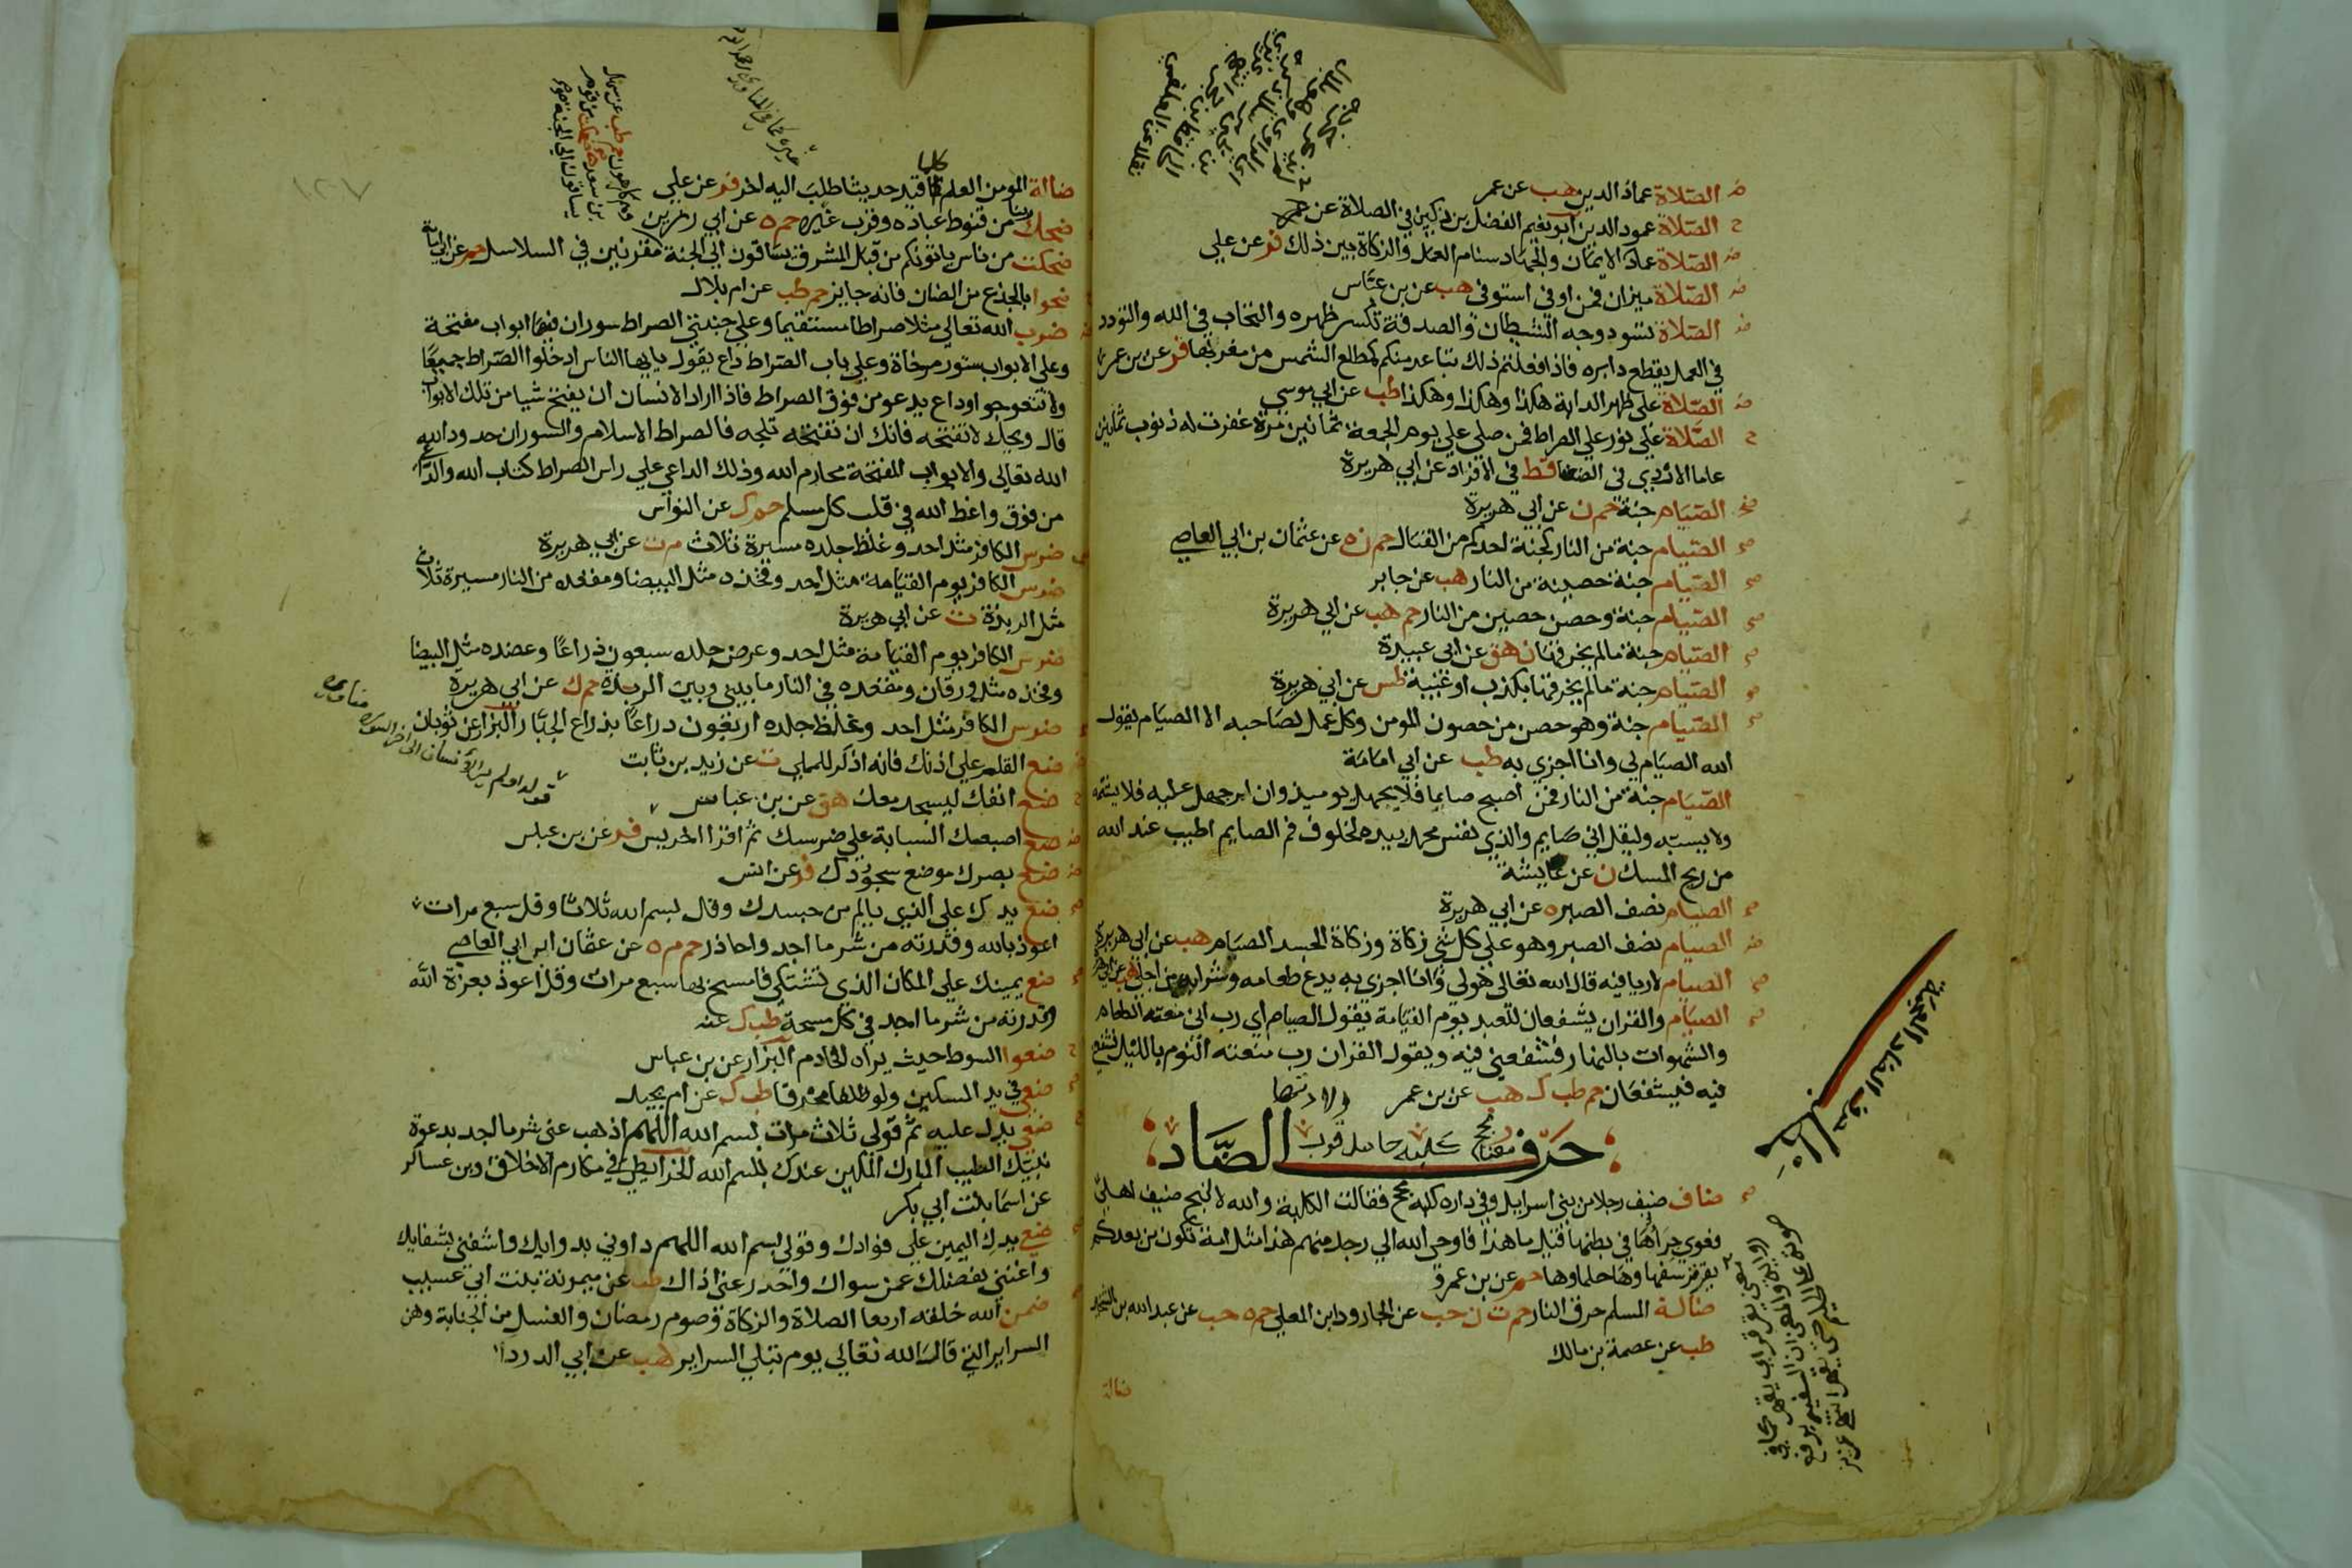 الصلاة عماد الدين هب عن عمر
الصلاة عمود الدين ابو نعيم الفضل بن دكين في الصلاة عن عمر
الصلاة عماد الايمان والجهاد سنام العمل والزكاة بين ذلك فر عن علي
الصلاة ميزان فمن اوفى استوفى هب عن بن عباس
الصلاة تسود وجه الشيطان والصدقة تكسر ظهره والتحاب في الله والتودد
في العمل يقطع دابره فاذا فعلتم ذلك تباعد منكم كمطلع الشمس من مغربها فر عن بن عمر
الصلاة على ظهر الدابة هكذا وهكذا وهكذا طب عن ابي موسى
الصلاة علي نور على الصراط فمن صلى علي يوم الجمعة ثمانين مرة غفرت له ذنوب ثمانين
عاما الازدي في الضعفا قط في الافراد عن ابي هريرة
الصيام جنة حم ن عن ابي هريرة
الصيام جنة من النار كجنة احدكم من القتال حم ن ه عن عثمان بن ابي العاصي
الصيام جنة حصينة من النار هب عن جابر
الصيام جنة وحصن حصين من النار حم هب عن ابي هريرة
الصيام جنة مالم يخرقها ن هق عن ابي عبيدة
الصيام جنة مالم يخرقها بكذب او غيبة طس عن ابي هريرة
الصيام جنة وهو حصن من حصون المومن وكل عمل لصاحبه الا الصيام يقول
الله الصيام لي وانا اجزي به طب عن ابي امامة
الصيام جنة من النار فمن اصبح صايما فلا يجهل يوميذ وان امر جهل عليه فلا يشتمه
ولا يسبه وليقل اني صايم والذي نفس محمد بيده لخلوف فم الصايم اطيب عند الله
من ريح المسك ن عن عايشة
الصيام نصف الصبر ه عن ابي هريرة
الصيام نصف الصبر وهو على كل شي زكاة وزكاة الجسد الصيام هب عن ابي هريرة
الصيام لا ريا فيه قال الله تعالى هو لي وانا اجزي به يدع طعامه وشرابه من اجلي هب عن ابي هريرة
الصيام والقران يشفعان للعبد يوم القيامة يقول الصيام اي رب اني منعته الطعام
والشهوات بالنهار فشفعني فيه ويقول القران رب منعته النوم بالليل فشفعني
فيه فيشفعان حم طب ك هب عن بن عمر
حرف الضاد
ضاف ضيف رجلا من بني اسرايل وفي داره كلبة مجح فقالت الكلبة والله لا انبح ضيف اهلي
فعوى جراؤها في بطنها قيل ما هذا فاوحى الله الى رجل منهم هذا مثل امة تكون من بعدكم
يقرقر سفهاوها حلماوها حم عن بن عمرو
ضالة المسلم حرق النار حم ت ن حب عن الجارود ابن المعلى حم ه حب عن عبد الله بن الشخير
طب عن عصمة بن مالك
ضالة
ضالة المومن العلم كلما قيد حديثا طلب اليه اخر فر عن علي
ضحك ربنا من قنوط عباده وقرب غيره حم ه عن ابي رزين
ضحكت من ناس ياتونكم من قبل المشرق يساقون الى الجنة مقرنين في السلاسل حم عن ابي امامة
ضحوا بالجذع من الضان فانه جايز حم طب عن ام بلال
ضرب الله تعالى مثلا صراطا مستقيما وعلى جنبتي الصراط سوران فيهما ابواب مفتحة
وعلى الابواب ستور مرخاة وعلى باب الصراط داع يقول يا ايها الناس ادخلوا الصراط جميعا
ولا تتعوجوا وداع يدعو من فوق الصراط فاذا اراد الانسان ان يفتح شيا من تلك الابواب
قال ويحك لا تفتحه فانك ان تفتحه تلجه فالصراط الاسلام والسوران حدود الله
الله تعالى والابواب المفتحة محارم الله وذلك الداعي على راس الصراط كتاب الله والداعي
من فوق واعظ الله في قلب كل مسلم حم ك عن النواس
ضرس الكافر مثل احد وغلظ جلده مسيرة ثلاث م ت عن ابي هريرة
ضرس الكافر يوم القيامة مثل احد وفخذه مثل البيضا ومقعده من النار مسيرة ثلاث
مثل الربذة ت عن ابي هريرة
ضرس الكافر يوم القيامة مثل احد وعرض جلده سبعون ذراعا وعضده مثل البيضا
وفخذه مثل ورقان ومقعده في النار ما بيني وبين الربذة حم ك عن ابي هريرة
ضرس الكافر مثل احد وغلظ جلده اربعون ذراعا بذراع الجبار البزار عن ثوبان
ضع القلم على اذنك فانه اذكر للمملي ت عن زيد بن ثابت
ضع انفك ليسجد معك هق عن بن عباس
ضع اصبعك السبابة على ضرسك ثم اقرا اخر يس فر عن بن عباس
ضع بصرك موضع سجودك فر عن انس
ضع يدك على الذي يالم من جسدك وقل بسم الله ثلاثا وقل سبع مرات
اعوذ بالله وقدرته من شر ما اجد واحاذر حم م ه عن عثمان ابن ابي العاصي
ضع يمينك على المكان الذي تشتكي فامسح بها سبع مرات وقل اعوذ بعزة الله
وقدرته من شر ما اجد في كل مسحة طب ك عنه
ضعوا السوط حيث يراه الخادم البزار عن بن عباس
ضعي في يد المسكين ولو ظلفا محرقا طب ك عن ام بجيد
ضعي يدك عليه ثم قولي ثلاث مرات بسم الله اللهم اذهب عني شر ما اجد بدعوة
نبيك الطيب المبارك المكين عندك بسم الله الخرايطي في مكارم الاخلاق وبن عساكر
عن اسما بنت ابي بكر
ضعي يدك اليمين على فوادك وقولي بسم الله اللهم داوني بدوايك واشفني بشفايك
واغنني بفضلك عمن سواك واحدر عني اذاك طب عن ميمونة بنت ابي عسيب
ضمن الله خلقه اربعا الصلاة والزكاة وصوم رمضان والغسل من الجنابة وهن
السراير التي قال الله تعالى يوم تبلى السراير هب عن ابي الدردا